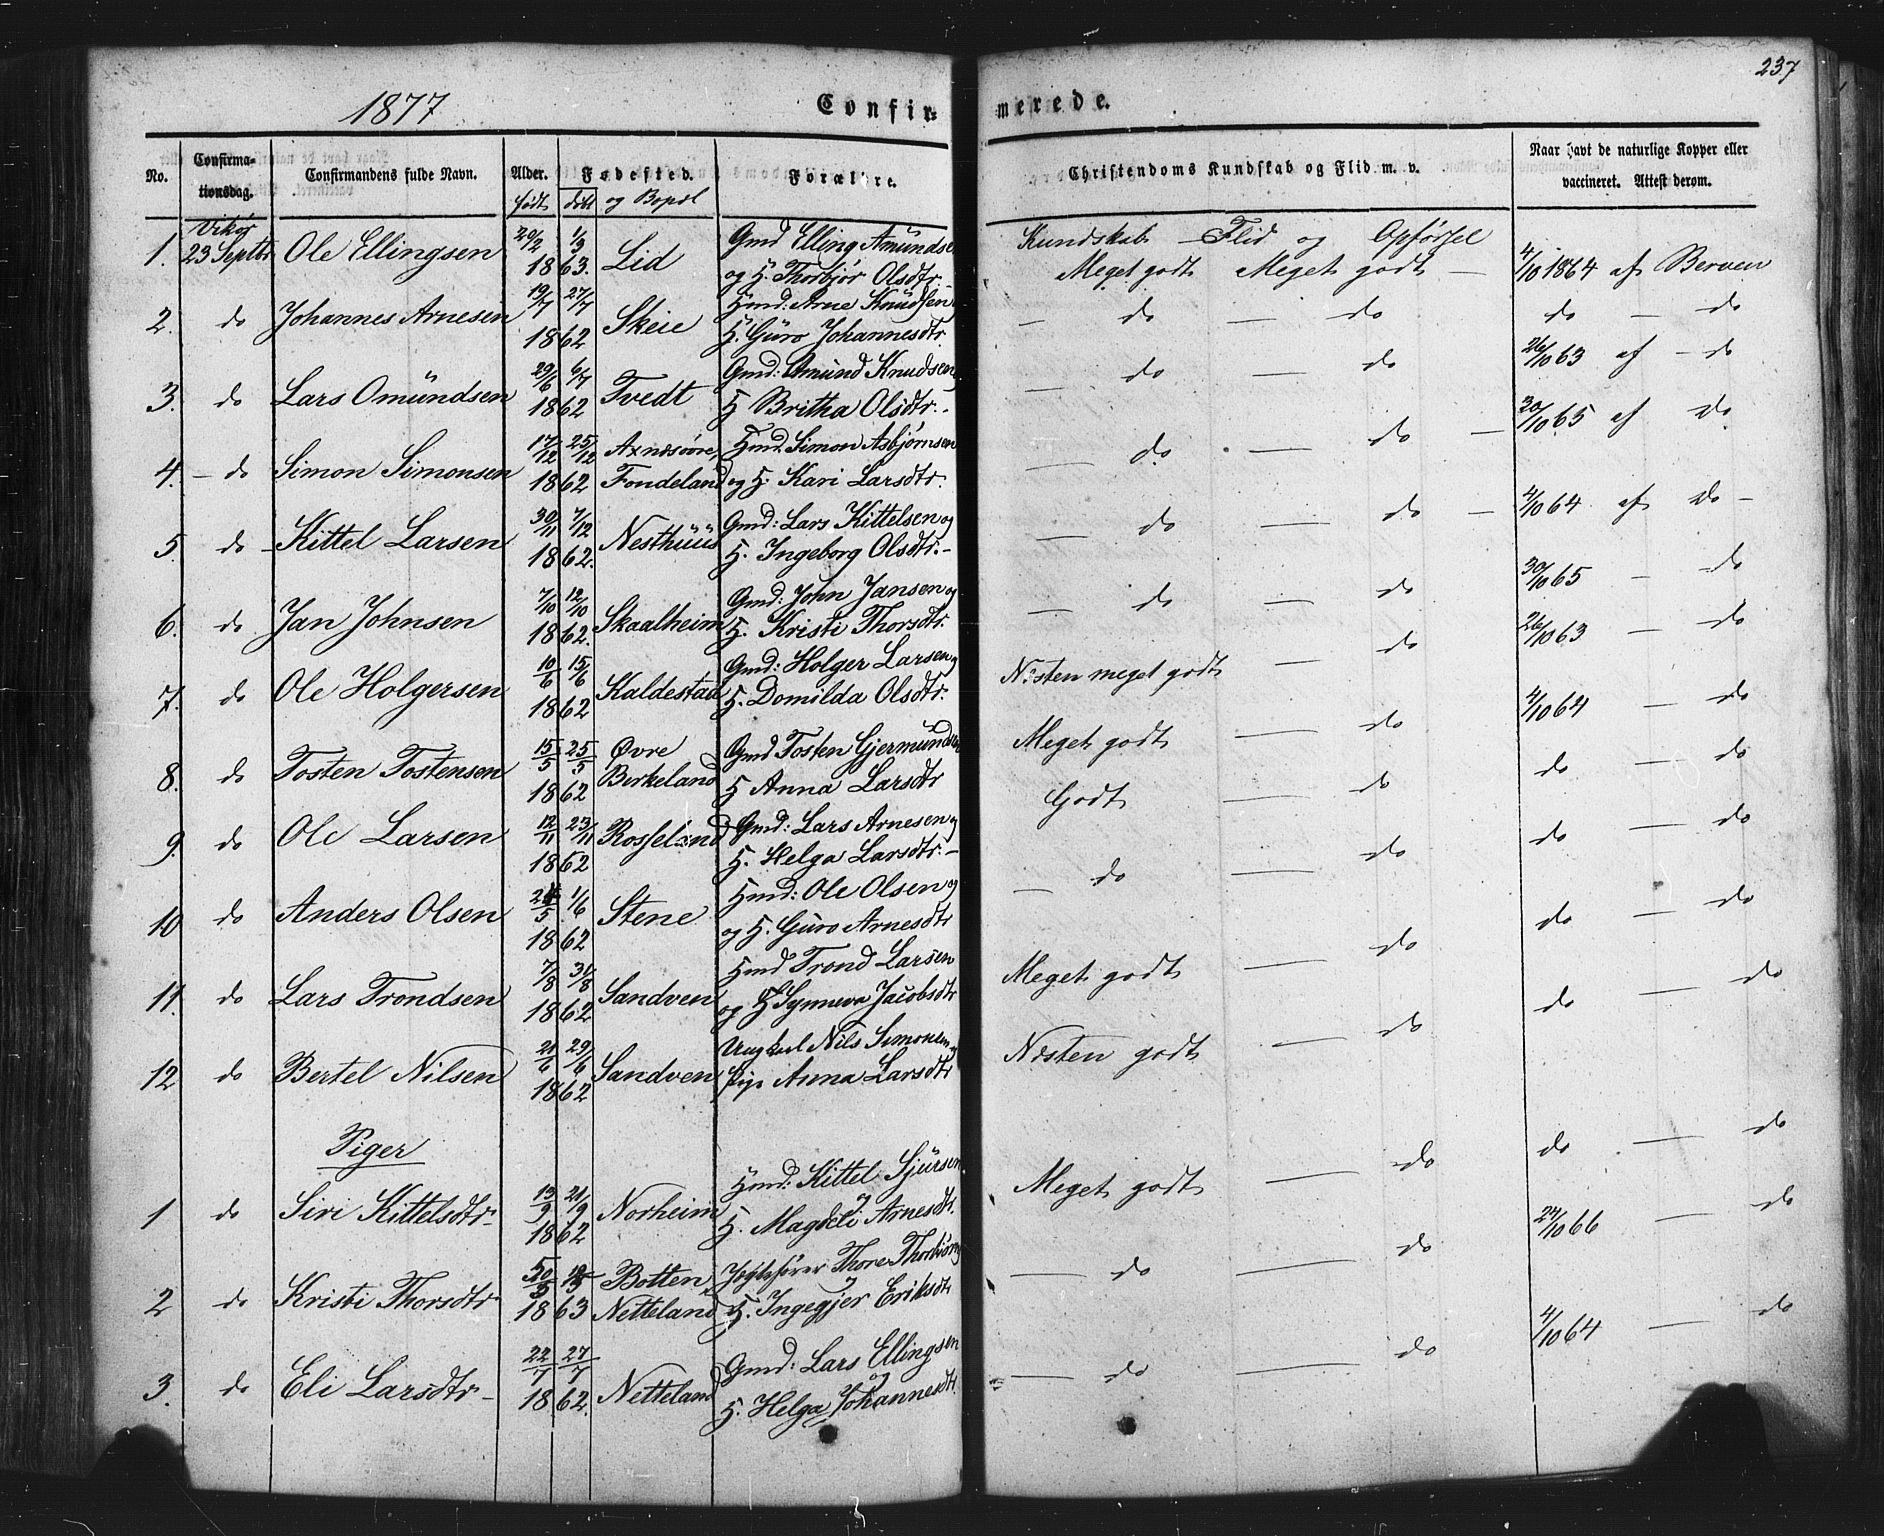 237
1877 Confir= merede.
No. Confirma-tionsdag. Confirmandens fulde Navn. Alder. født døbt Fødested. og Bopæl Forældre. Christendoms Kundskab og Flid m. v. Naar havt de naturlige Kopper eller vaccineret. Attest derom.
Vikør Kundskab – Flid og Opførsel
1. 23 Septbr Ole Ellingsen 20/2 1/3 1863. Lid Gmd Elling Amundse og H. Thorbjør Olsdtr. Meget godt Meget godt — 4/10 1864 af Berven
2. do Johannes Arnesen 19/7 27/7 1862 Skeie Hmd. Arne Knudsen H. Guro Johannesdtr. — do — do do — do
3. do Lars Omundsen 29/6 6/7 1862 Tvedt Gmd: Amund Knudsen H Britha Olsdtr. — do do 26/10 63 af – do
4. – do Simon Simonsen 17/12 25/12 1862 Fondeland Hmd. Simon Asbjørnsen og H. Kari Larsdtr. — do — do — 30/10 65 af do
5. do – Kittel Larsen 30/11 7/12 1862. Nesthuus Gmd: Lars Kittelsen og H. Ingeborg Olsdtr. – — do — do – 4/10 64 af do –
6. do Jan Johnsen 7/10 12/10 1862. Skaalheim Gmd: John Jansen og H. Kristi Thorsdtr. — do — do 30/10 65 — do
7. do Ole Holgersen 10/6 15/6 1862 Kaldestad Gmd: Holger Larsen og H. Domilda Olsdtr. Næsten meget godt — do 26/10 63 — do
8. do Tosten Tostensen 15/5 25/5 1862 Øvre Birkeland Gmd Tosten Gjermundsen H Anna Larsdtr Meget godt — do 4/10 64 — do
9. do Ole Larsen 12/11 23/11 1862 Rosseland Gmd: Lars Arnesen og H. Helga Larsdtr. – Godt — do do — do
10 do Anders Olsen 1/6 1862 Stene Hmd: Ole Olsen og og H. Guro Arnesdtr — do — do do — do
11. do Lars Trondsen 7/8 31/8 1862 Sandven Hmd Trond Larsen og H Synneva Jacobsdtr Meget godt — do do — do
12 do Bertel Nilsen 21/6 29/6 1862 Sandven Ungkarl Nils Simonsen og Pige Anna Larsdtr Næsten godt — do do — do
Piger
1 do Siri Kittelsdtr. 13/9 21/9 1862 Norheim Hmd: Kittel Sjursen H. Magdeli Arnesdtr. Meget godt — do do — do
2 do Kristi Thorsdtr 1863 Botten Netteland Thore Thorbiørns H. Ingegjer Eriksdtr — do — do 24/10 66 — do
3. do Eli Larsdtr. – 22/7 27/7 1862. Netteland Gmd: Lars Ellingsen H. Helga Johannesdtr. — do — do 4/10 64 — do